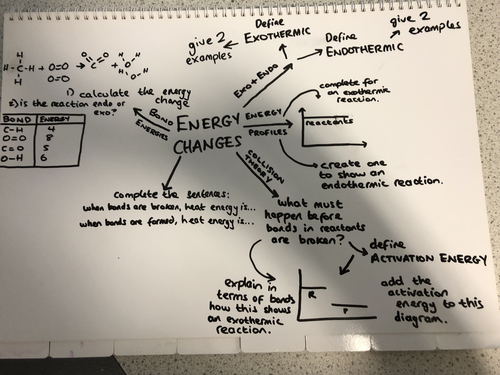 Define
EXOTHERMIC
give 2
examples
Define
ENDOTHERMIC
give 2
examples
EXO + ENDO
H
H-C-H + O=O → O C O + H O H
H O=O H O H
1) calculate the energy
change
2) is the reaction endo or
exo?
BOND ENERGY
C-H 4
O=O 8
C=O 5
O-H 6
BOND
ENERGIES
ENERGY
CHANGES
ENERGY
PROFILES
complete for
an exothermic
reaction.
reactants
create one
to show an
endothermic reaction.
COLLISION
THEORY
Complete the sentences:
when bonds are broken, heat energy is...
when bonds are formed, heat energy is...
what must
happen before
bonds in reactants
are broken?
define
ACTIVATION ENERGY
explain in
terms of bonds
how this shows
an exothermic
reaction.
R
P
add the
activation
energy to this
diagram.